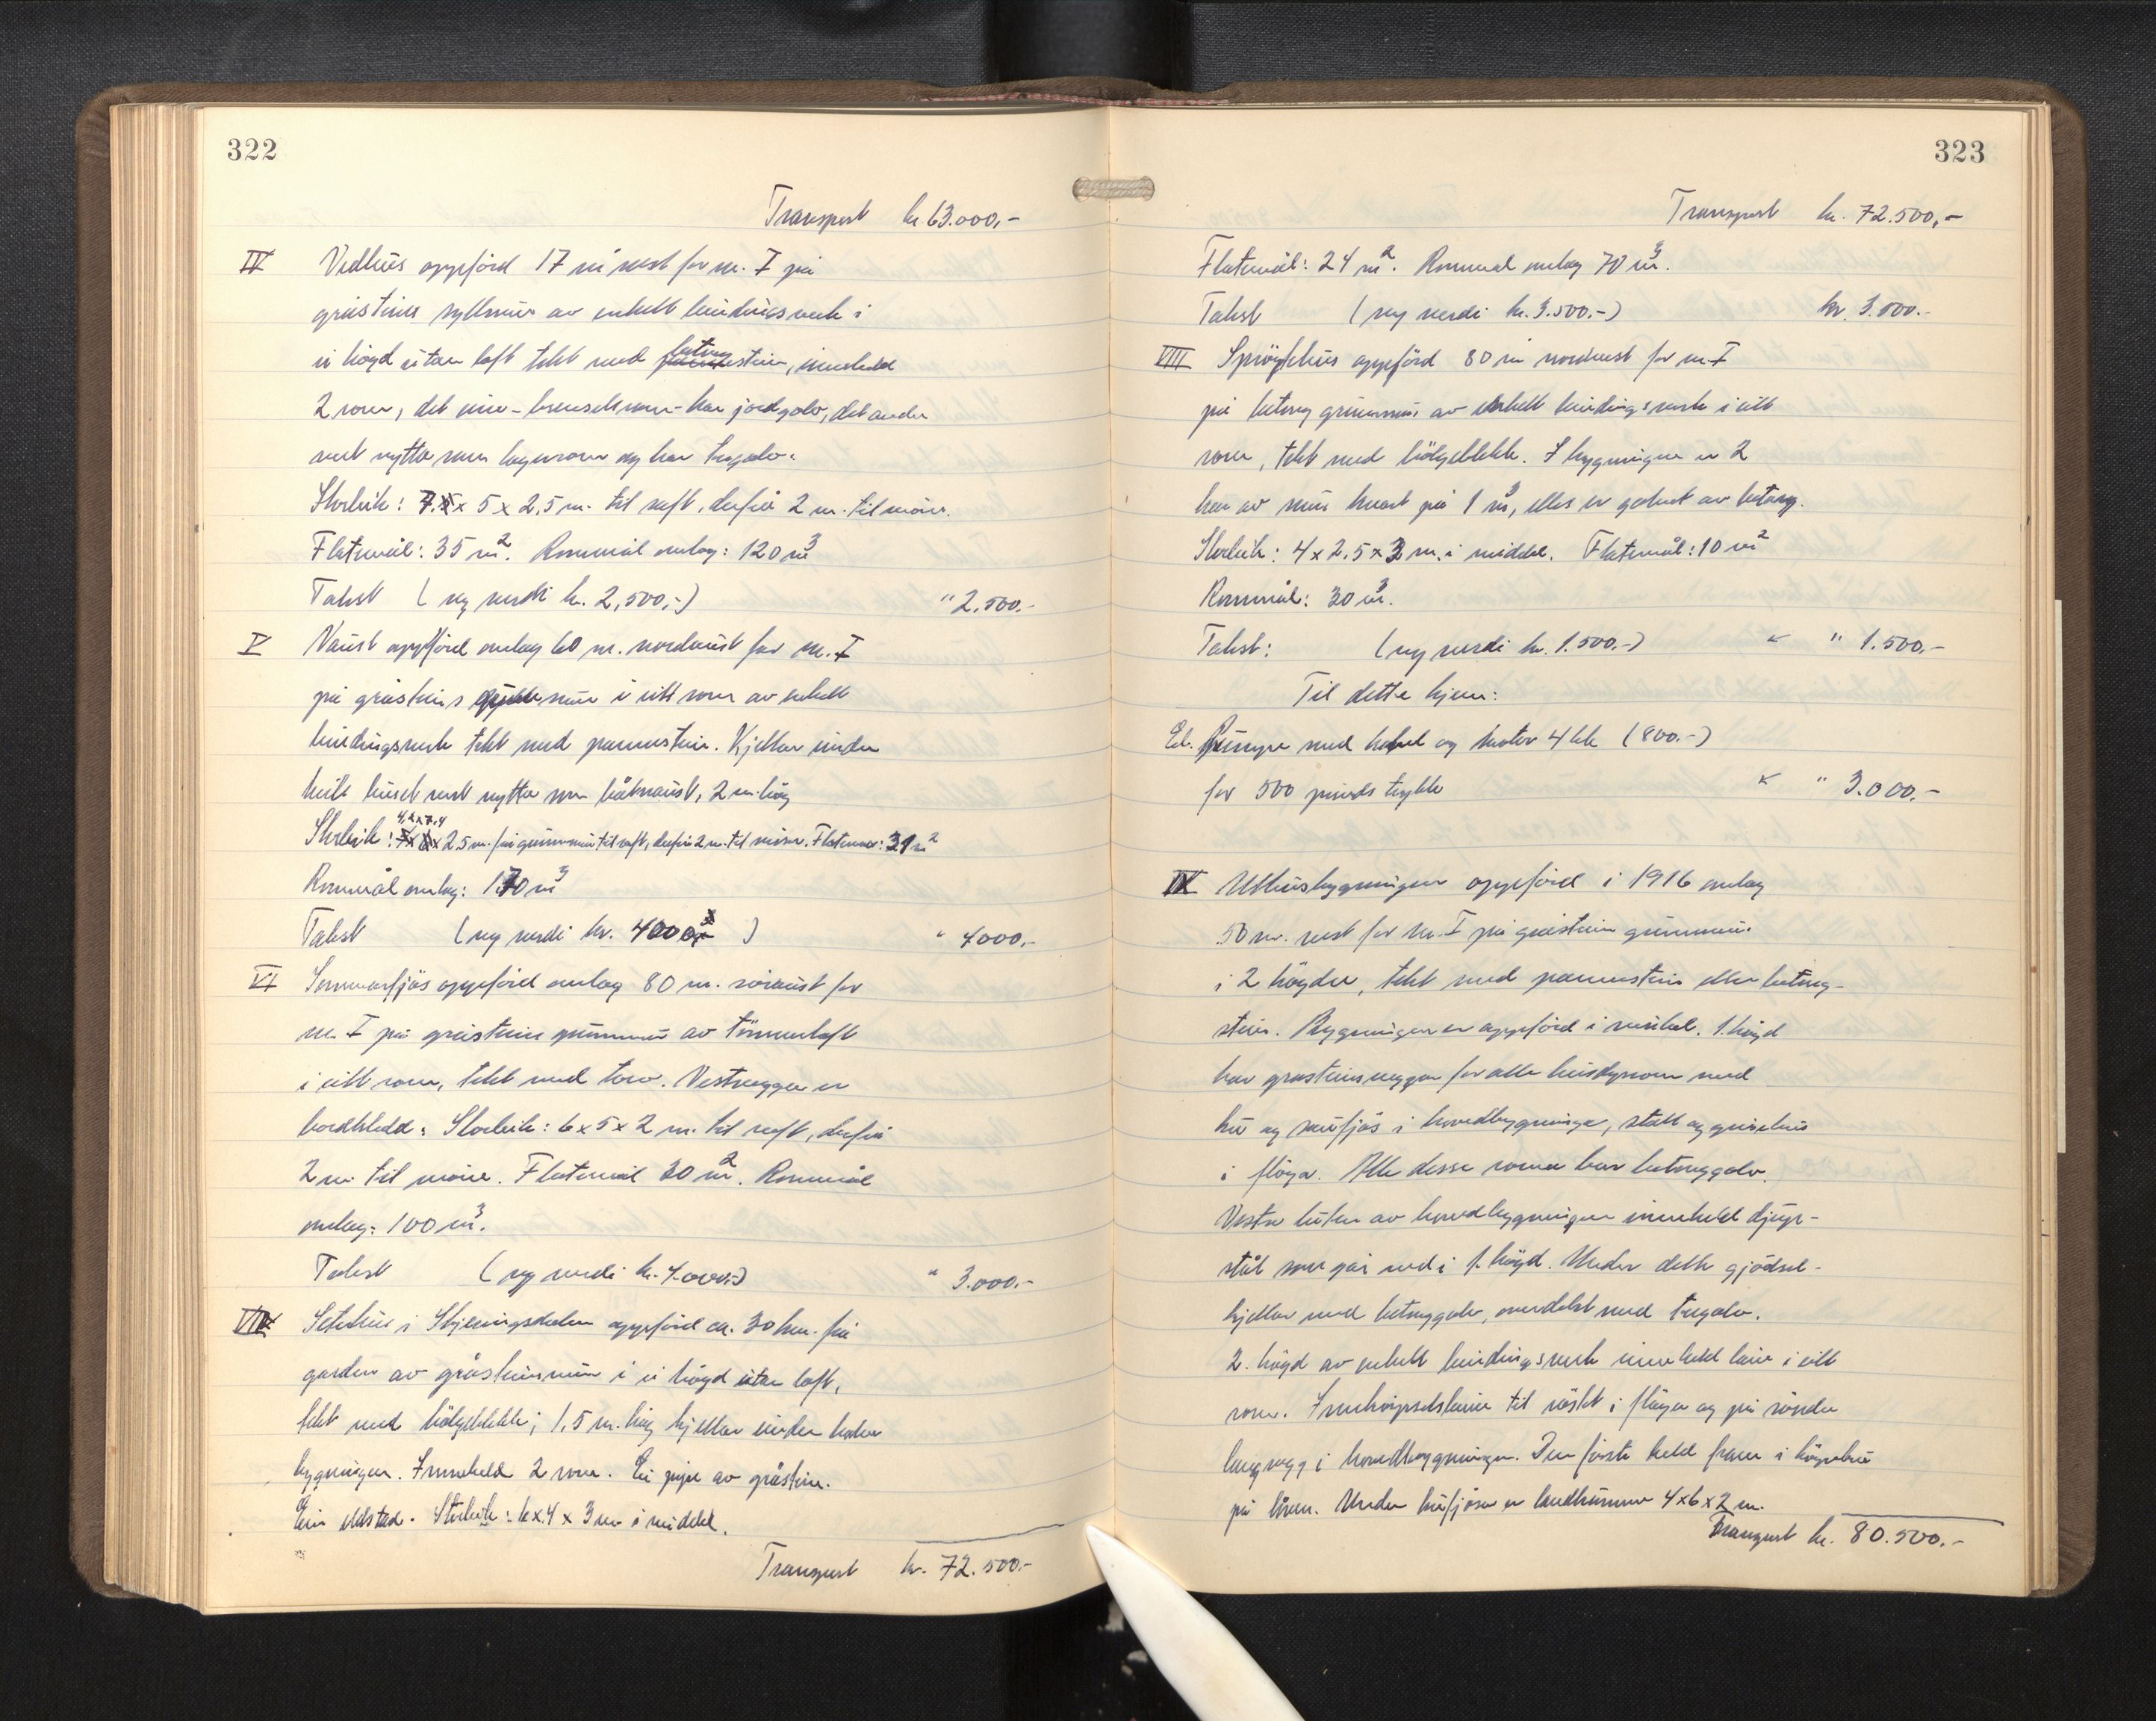 322
Transport kr. 63.000,-
IV Vedhus oppförd 17 m vest for nr. I på
gråsteins syllmur av enkelt bindingsverk i
ei högd utan loft tekt med betong stein, inneheld
2 rom, det eine - brenselsrom - har jordgolv, det andre
vert nytta som lagerrom og har tregolv.
Storleik: 7 x 5 x 2,5 m. til raft, derfrå 2 m. til möne.
Flatemål: 35 m². Rommål omlag: 120 m³
Takst (ny verdi kr. 2,500,-) " 2.500.-
V Naust oppförd omlag 60 m. nordaust for nr. I
på gråsteins mur i eitt rom av enkelt
bindingsverk tekt med pannestein. Kjellar under
heile huset vert nytta som båtnaust, 2 m. høg
4,2 x 7,4
Storleik: 7 x x 2,5 m. frå grunnmur til raft, derfrå 2 m. til möne. Flatemål: 31 m²
Rommål omlag: 170 m³
Takst (ny verdi kr. 4000 ) " 4000.-
VI Sommarfjös oppförd omlag 80 m. söraust for
nr. I på gråsteins grunnmur av tömmerlaft
i eitt rom, tekt med torv. Vestveggen er
bordkledd. Storleik: 6 x 5 x 2 m. til raft, derfrå
2 m. til möne. Flatemål 30 m². Rommål
omlag: 100 m³.
Takst (ny verdi kr. 4.000.-) " 3.000.-
VII Selehus i oppförd ca. 30 km. frå
garden av gråsteinsmur i ei högd utan loft,
tekt med bölgeblekk; 1,5 m. høg kjellar under halve
bygningen. Inneheld 2 rom. Ei pipe av gråstein.
Ein eldstad. Storleik: 6 x 4 x 3 m i middel.
Transport kr. 72.500.-
323
Transport kr. 72.500,-
Flatemål: 24 m². Rommål omlag 70 m³.
Takst (ny verdi kr. 3.500.-) kr. 3.500.-
VIII oppförd 80 m nordvest for nr. I
på betong grunnmur av enkelt bindingsverk i eitt
rom, tekt med bölgeblekk. I bygningen er 2
kar av mur kvart på 1 m³, elles er golvet av betong.
Storleik: 4 x 2,5 x 3 m. i middel. Flatemål: 10 m²
Rommål: 30 m³.
Takst: (ny verdi kr. 1.500.-) " 1.500.-
Til dette kjem:
El. Pumpe med kabel og motor 4 hk (800.-)
for 500 punds trykk " 3.000.-
IX Uthusbygningen oppförd i 1916 omlag
50 m. vest for nr. I på gråstein grunnmur
i 2 högder, tekt med pannestein eller betong-
stein. Bygningen er oppförd i vinkel. 1. högd
har gråsteinsveggar for alle husdyrrom med
ku og saufjös i hovedbygningen, stall og grisehus
i flöya. Alle desse romma har betonggolv.
Vestre luten av hovedbygningen inneheld djup-
stål som går ned i 1. högd. Under dette gjödsel-
kjellar med betonggolv, overdekt med tregolv.
2. högd av enkelt bindingsverk inneheld låve i eitt
rom. Innköyrselsbruer til stålet i flöya og på söndre
langvegg i hovedbygningen. Den förste held fram i högebru
på låven. Under kufjösen er landkummer 4x6x2 m.
Transport kr. 80.500.-